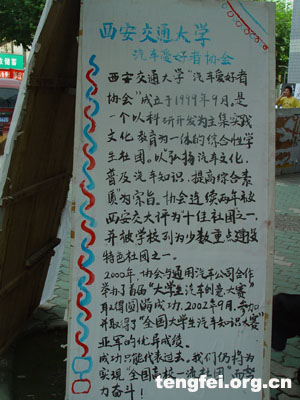 西安交通大学
汽车爱好者协会
西安交通大学“汽车爱好者
协会”成立于1999年9月。是
一个以科研开发为主集实践
文化教育为一体的综合性学
生社团。以“弘扬汽车文化，
普及汽车知识，提高综合素
质”为宗旨。协会连续两年被
西安交大评为十佳社团之一，
并被学校列为少数重点建设
特色社团之一。
2000年，协会与通用汽车公司合作
举办了首届“大学生汽车创意大赛”
取得圆满成功。2002年9月，参加
并取得了“全国大学生汽车知识大赛”
亚军的优异成绩。
成功只能代表过去，我们仍将为
实现“全国高校一流社团”而努
力奋斗！
tengfei.org.cn